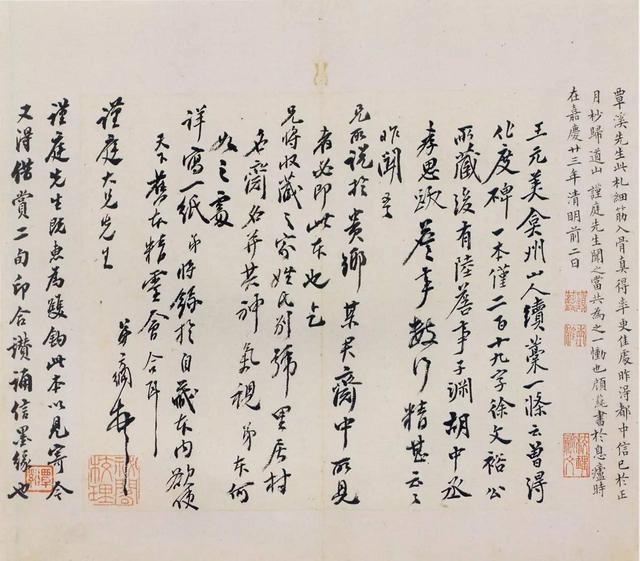 覃溪先生此札細筋入骨真得率更佳處昨得都中信已於正
月杪歸道山謹庭先生聞之當共為之一慟也顧蒓書於息廬時
在嘉慶廿三年清明前二日
王元美弇州山人續藁一條云曾得
化度碑一本僅二百十九字徐文裕公
所藏後有陸詹事子淵胡中丞
孝思跋詹事數行精甚云云
昨聞吾
兄所説於貴鄉某君齋中所見
者必即此本也乞
兄將收藏之家姓氏別號里居村
名齋名并其神氣視弟本何
如之處
詳寫一紙弟將錄於自藏本內欲使
天下舊本精靈會合耳
弟方綱
謹庭大兄先生
謹庭先生既惠為雙鉤此本以見寄今
又得借賞二句印合讚誦信墨緣也
祕閣校理